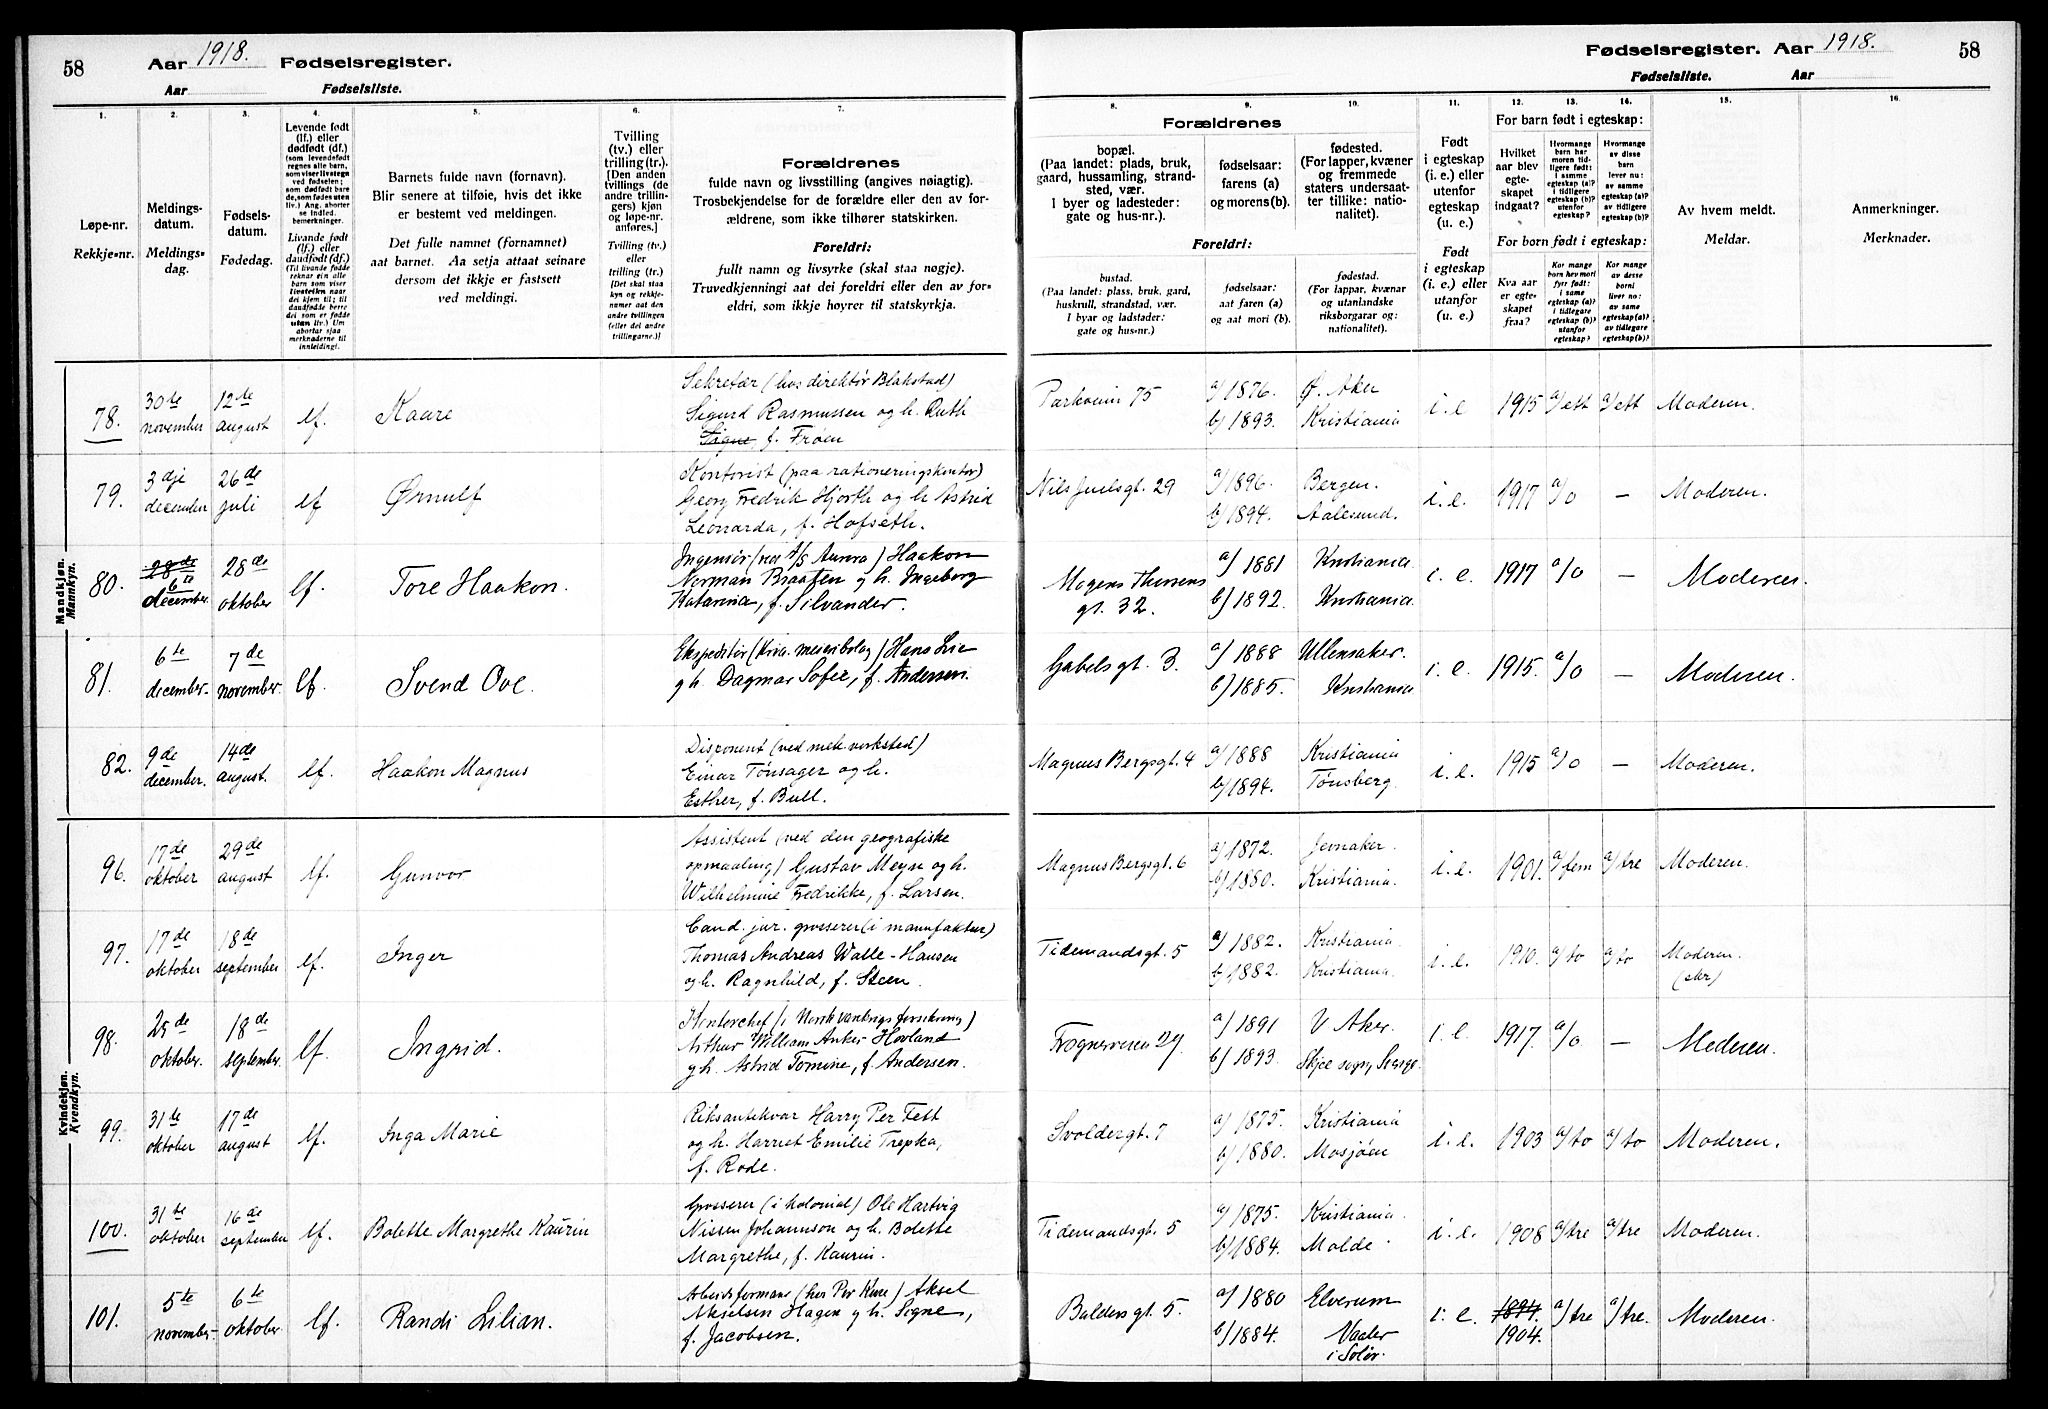 58 Aar 1918. Fødselsregister.
Aar Fødselsliste.
Fødselsregister. Aar 1918. 58
Fødselsliste. Aar
1. 2. 3. 4. 5. 6. 7.
Løpe-nr.
Rekkje-nr.
Meldings-
datum.
Meldings-
dag.
Fødsels-
datum.
Fødedag.
Levende født
(lf.) eller
dødfødt (df.)
Livande født
(lf.) eller
daudfødt (df.)
Barnets fulde navn (fornavn).
Blir senere at tilføie, hvis det ikke
er bestemt ved meldingen.
Det fulle namnet (fornamnet)
aat barnet. Aa setja attaat seinare
dersom det ikkje er fastsett
ved meldingi.
Tvilling
(tv.) eller
trilling (tr.).
[Den anden
tvillings (de
andre trillin-
gers) kjøn
og løpe-nr.
anføres.]
Tvilling (tv.)
eller
trilling (tr.)
[Det skal staa
kyn og rekkje-
namer aat den
andre tvillingen
(eller dei andre
trillingarne.)]
Forældrenes
fulde navn og livsstilling (angives nøiagtig).
Trosbekjendelse for de forældre eller den av for-
ældrene, som ikke tilhører statskirken.
Foreldri:
fullt namn og livsyrke (skal staa nøgje).
Truvedkjenningi aat dei foreldri eller den av for-
eldri, som ikkje høyrer til statskyrkja.
8. 9. 10. 11. 12. 13. 14. 15. 16.
Forældrenes
bopæl.
(Paa landet: plads, bruk,
gaard, hussamling, strand-
sted, vær.
I byer og ladesteder:
gate og hus-nr.).
fødselsaar:
farens (a)
og morens (b).
fødested.
(For lapper, kvæner
og fremmede
staters undersaat-
ter tillike: natio-
nalitet).
Foreldri:
bustad.
(Paa landet: plass, bruk, gard,
huskrull, strandstad, vær.
I byar og ladstader:
gate og hus-nr.)
fødselsaar:
aat faren (a)
og aat mori (b).
fødestad.
(For lappar, kvænar
og utanlandske
riksborgarar og:
nationalitet).
Født
i egteskap
(i. e.) eller
utenfor
egteskap
(u. e.)
Født
i egteskap
(i. e.) eller
utanfor
(u. e.)
For barn født i egteskap:
Hvilket
aar blev
egte-
skapet
indgaat?
Hvormange
barn har
moren tid-
ligere født:
i samme
egteskap (a)?
i tidligere
egteskap (b)?
utenfor
egteskap?
Hvormange
av disse
barn
lever nu:
av samme
egteskap (a)?
av tidligere
egteskap (b)?
For born født i egteskap:
Kva aar
er egte-
skapet
fraa?
Kor mange
born hev mori
fyrr født:
i same
egteskap (a)?
i tidlegare
egteskap (b)?
utanfor
egteskap?
Kor mange
av desse
borni
liver no:
av same
egteskap (a)?
av tidlegare
egteskap (b)?
Av hvem meldt.
Meldar.
Anmerkninger.
Merknader.
Mandkjøn.
Mannkyn.
78. 30te november 12te august lf. Kaare
Sekretær (hos direktør Blakstad)
Sigurd Rasmussen og h. Ruth
Signe, f. Frøen
Parkveien 75 a/ 1876. b/ 1893. Ø. Aker Kristiania i. e 1915 a/ ett a/ ett Moderen.
79. 3dje december 26de juli lf Ørnulf
Kontorist (paa rationeringskontor)
Georg Fredrik Hjorth og h. Astrid
Leonarda, f. Hofseth.
Nils Juelsgt. 29 a/ 1896. b/ 1894. Bergen. Aalesund. i. e. 1917 a/o — Moderen.
80. 28de 6te december. 28de oktober lf. Tore Haakon.
Ingeniør (ved A/S Aurora) Haakon
Norman Braaten og h. Ingeborg
Katarina, f. Silvander.
Mogens Thorsens gt. 32. a/ 1881 b/ 1892. Kristiania. Kristiania. i. e. 1917 a/o — Moderen.
81. 6te december. 7de november. lf. Svend Ove.
Ekspeditør (Kria. meieribolag) Hans Lie
og h. Dagmar Sofie, f. Andersen.
Gabels gt. 3. a/ 1888 b/ 1885. Ullensaker. Kristiania i. e. 1915. a/o — Moderen.
82. 9de december. 14de august. lf. Haakon Magnus
Disponent (ved mek. verksted)
Einar Tønsager og h.
Esther, f. Bull.
Magnus Bergsgt. 4 a/ 1888 b/ 1894. Kristiania Tønsberg i. e. 1915 a/o — Moderen.
Kvindekjøn.
Kvendkyn.
96. 17de oktober 29de august lf. Gunvor
Assistent (ved den geografiske
opmaaling) Gustav Meyse og h.
Wilhelmine Fredrikke, f. Larsen.
Magnus Bergsgt. 6 a/ 1872. b/ 1880. Jevnaker. Kristiania. i. e. 1901. a/ fem a/ tre Moderen.
97. 17de oktober 18de september lf. Inger
Cand. jur. grosserer (i manufaktur)
Thomas Andreas Walle-Hansen
og h. Ragnhild, f. Steen.
Tidemandsgt. 5 a/ 1882. b/ 1882. Kristiania. Kristiania. i. e. 1910. a/ to a/ to Moderen. (skr)
98. 25de oktober. 18de september. lf. Ingrid.
Kontorchef (i Norsk Varekrigsforsikring)
Arthur William Anker Hovland
og h. Astrid Tomine, f. Andersen.
Frognerveien 27. a/ 1891 b/ 1893. V Aker. Skjee sogn, Sverige. i. e. 1917. a/o — Moderen.
99. 31te oktober 17de august lf. Inga Marie
Riksantikvar Harry Per Fett
og h. Harriet Emilie Trepka,
f. Rode.
Svoldergt. 7 a/ 1875. b/ 1880. Kristiania Mosjøen i. e. 1903 a/ to a/ to Moderen.
100. 31te oktober 16de september lf. Bolette Margrethe Kaurin
Grosserer (i kolonial) Ole Hartvig
Nissen Johannson og h. Bolette
Margrethe, f. Kaurin.
Tidemandsgt. 5 a/ 1875. b/ 1884. Kristiania. Molde. i. e. 1908 a/ tre a/ tre Moderen.
101. 5te november. 6te oktober. lf. Randi Lilian.
Arbeidsformann (hos Per Kure) Aksel
Akselsen Hagen og h. Signe,
f. Jacobsen.
Balders gt. 5. a/ 1880 b/ 1884. Elverum Vaaler i Solør. i. e. 1894. 1904. a/ tre a/ tre. Moderen.